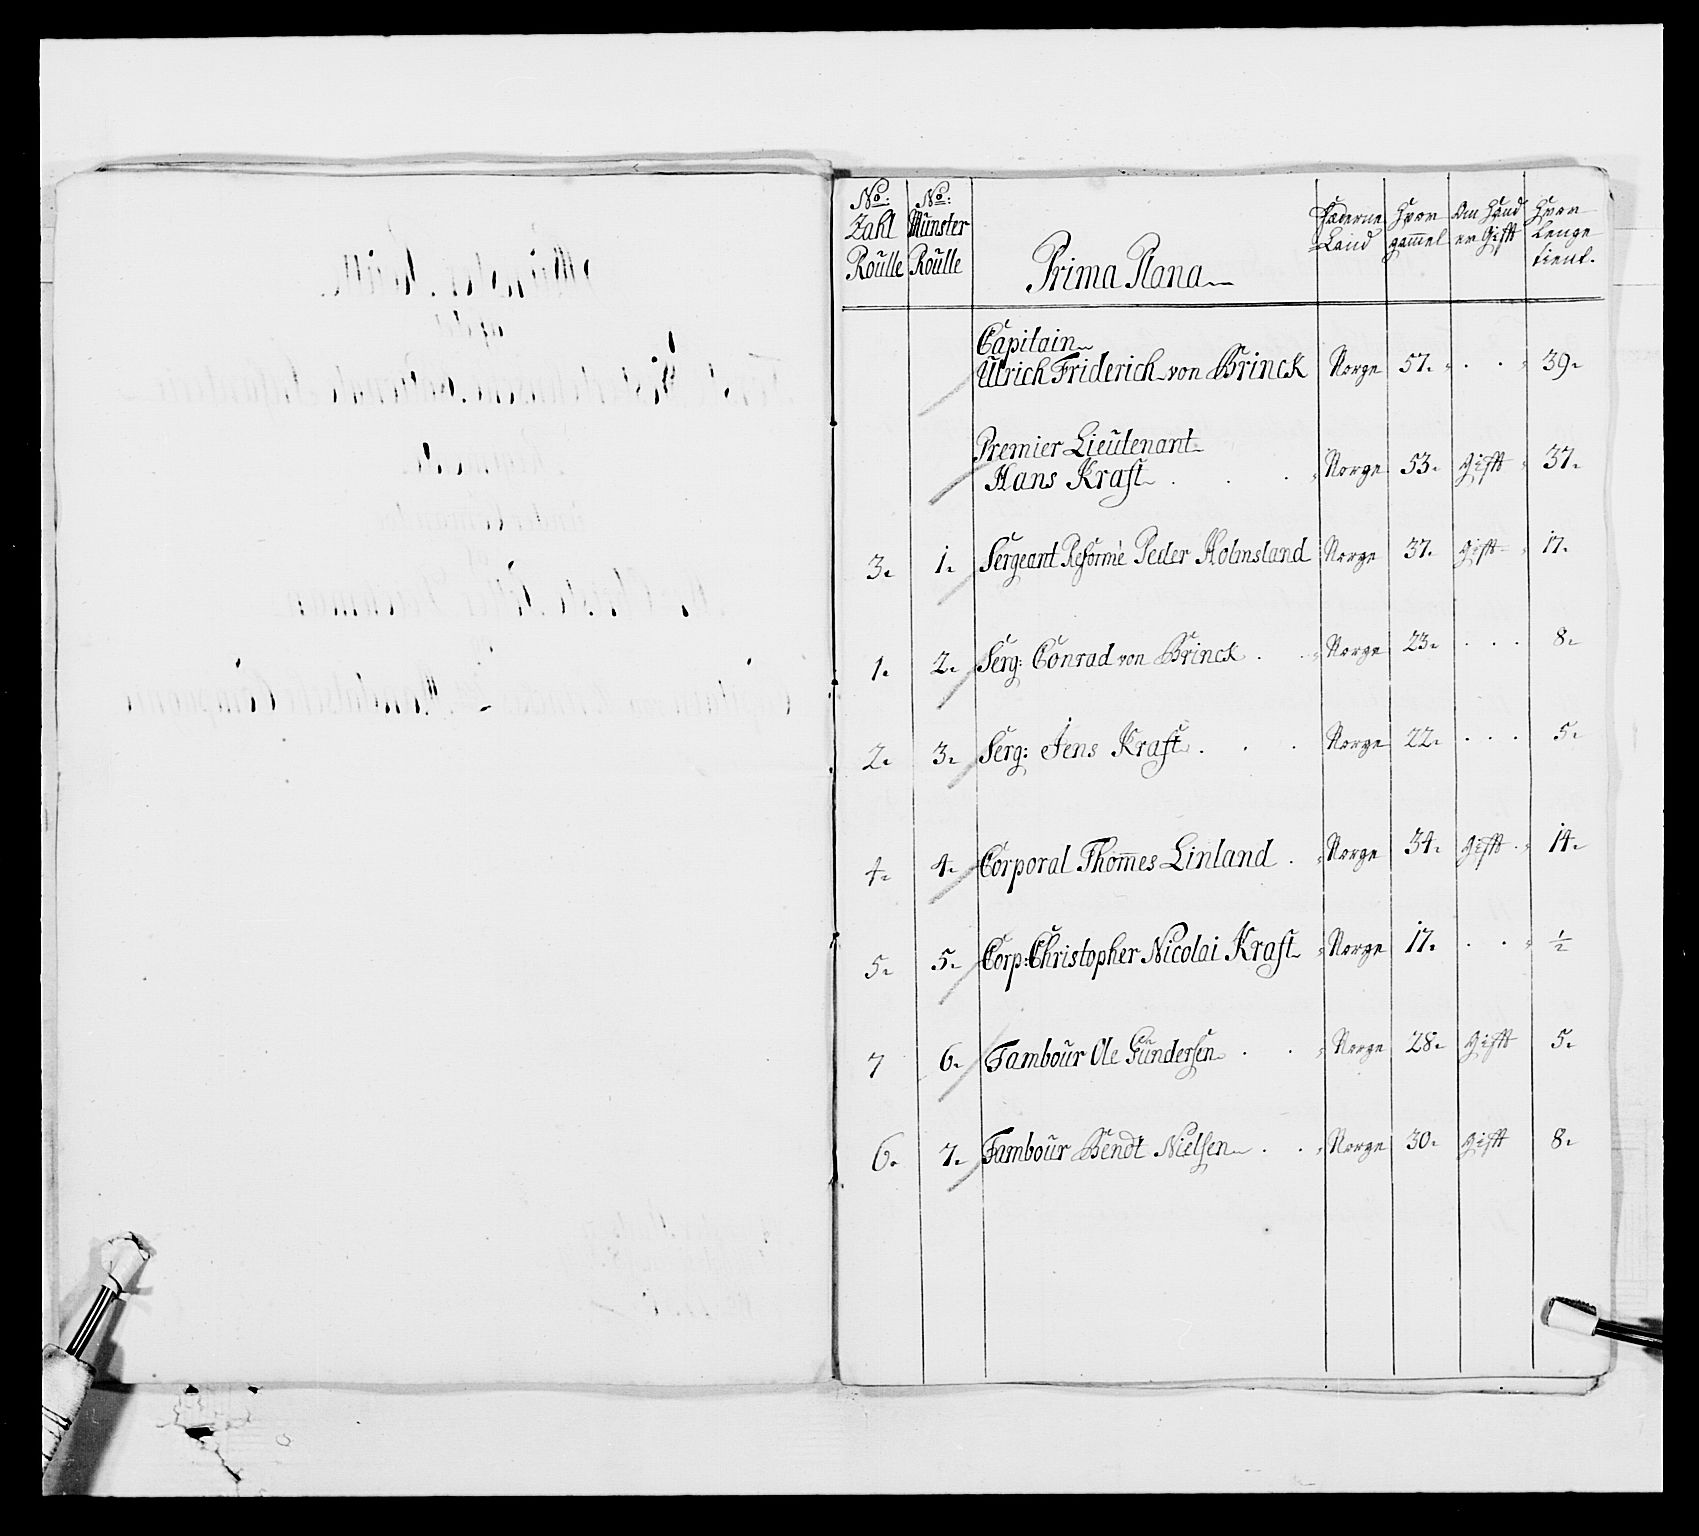 No: Zahl Roulle | No: Munster Roulle | Prima Plana | Fæderne Land | Hvor gam̄el | Om Hand er Gifft | Hvor Lenge tient.
Capitain
Ulrich Friderich von Brinck | Norge | 57. | . . | 39.
Premier Lieutenant
Hans Kraft . . . | Norge | 53. | Gifft | 37.
3. | 1. | Sergeant Reformé Peder Holmsland | Norge | 37. | Gifft | 17.
1. | 2. | Serg: Conrad von Brinck . . | Norge | 23. | . . . | 8.
2. | 3. | Serg: Jens Kraft . . . | Norge | 22. | . . . | 5.
4. | 4. | Corporal Thom̄es Linland . | Norge | 34. | Gifft . | 14.
5. | 5. | Corp: Christopher Nicolai Kraft | Norge | 17. | . . | ½
7 | 6. | Tambour Ole Gundersen . . | Norge | 28. | Gifft | 5.
6. | 7. | Tambour Bendt Nielsen . . | Norge | 30. | Gifft | 8.